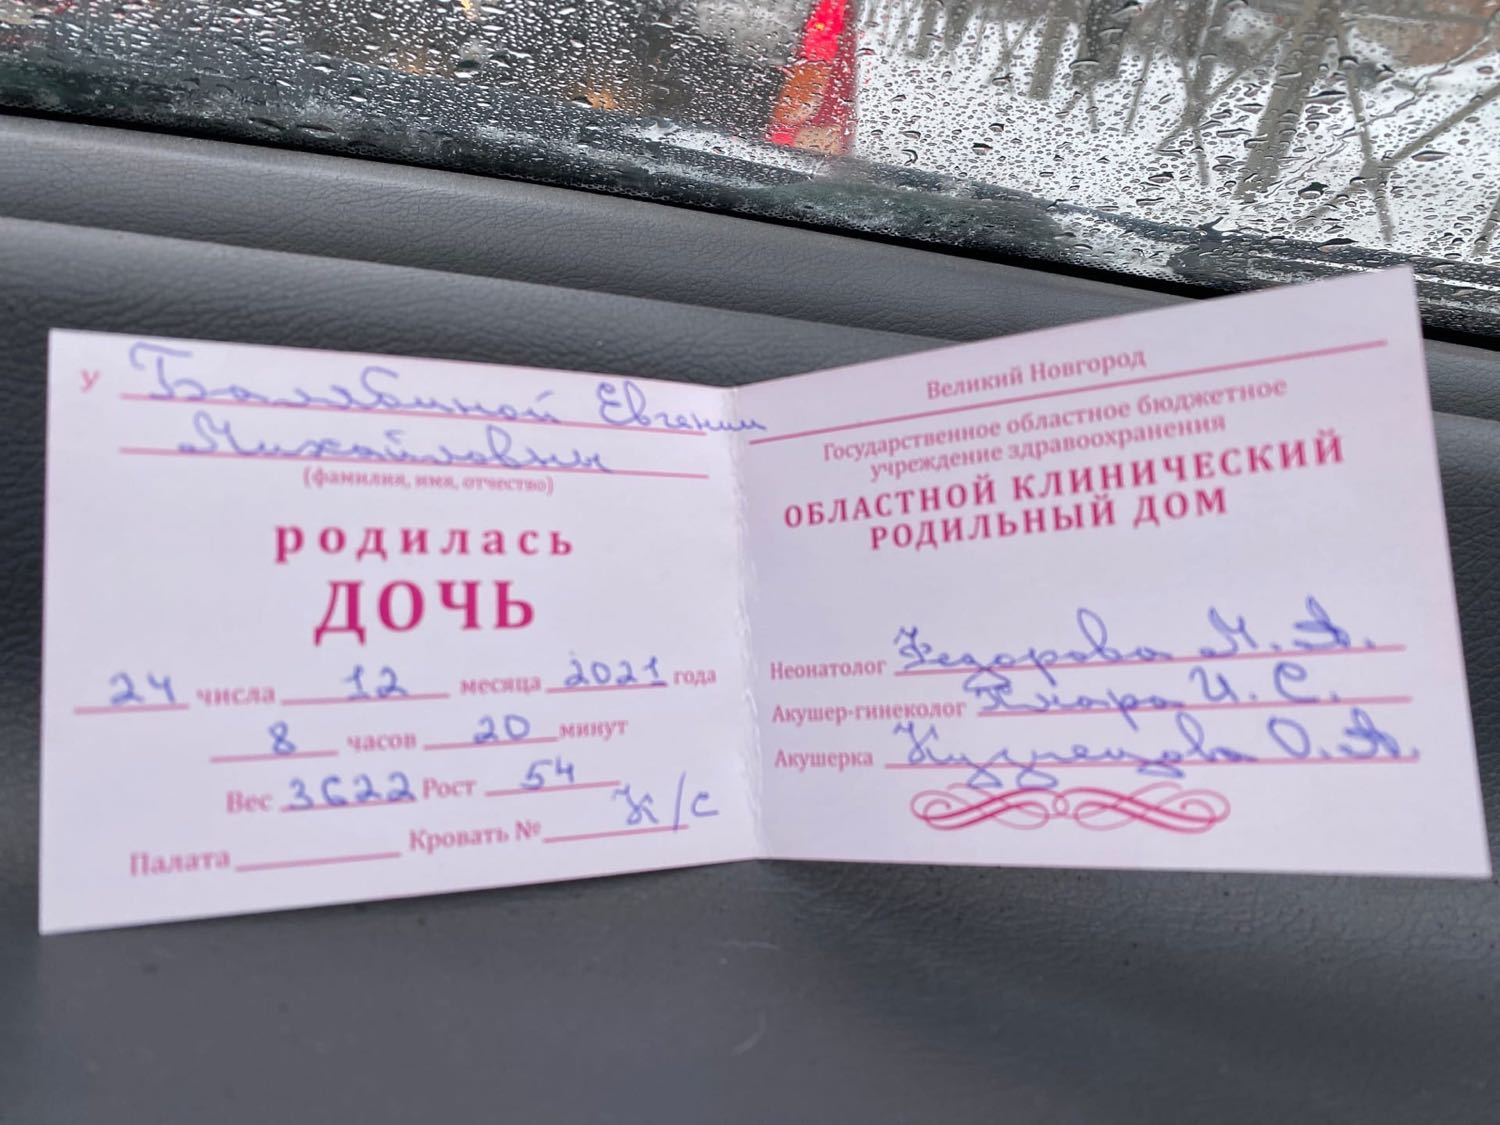 У Балябиной Евгении
Михайловны
(фамилия, имя, отчество)
родилась
ДОЧЬ
24 числа 12 месяца 2021 года
8 часов 20 минут
Вес 3622 Рост 54
Палата Кровать № К/с
Великий Новгород
Государственное областное бюджетное
учреждение здравоохранения
ОБЛАСТНОЙ КЛИНИЧЕСКИЙ
РОДИЛЬНЫЙ ДОМ
Неонатолог Федорова М. А.
Акушер-гинеколог И. С.
Акушерка Кузнецова О. А.